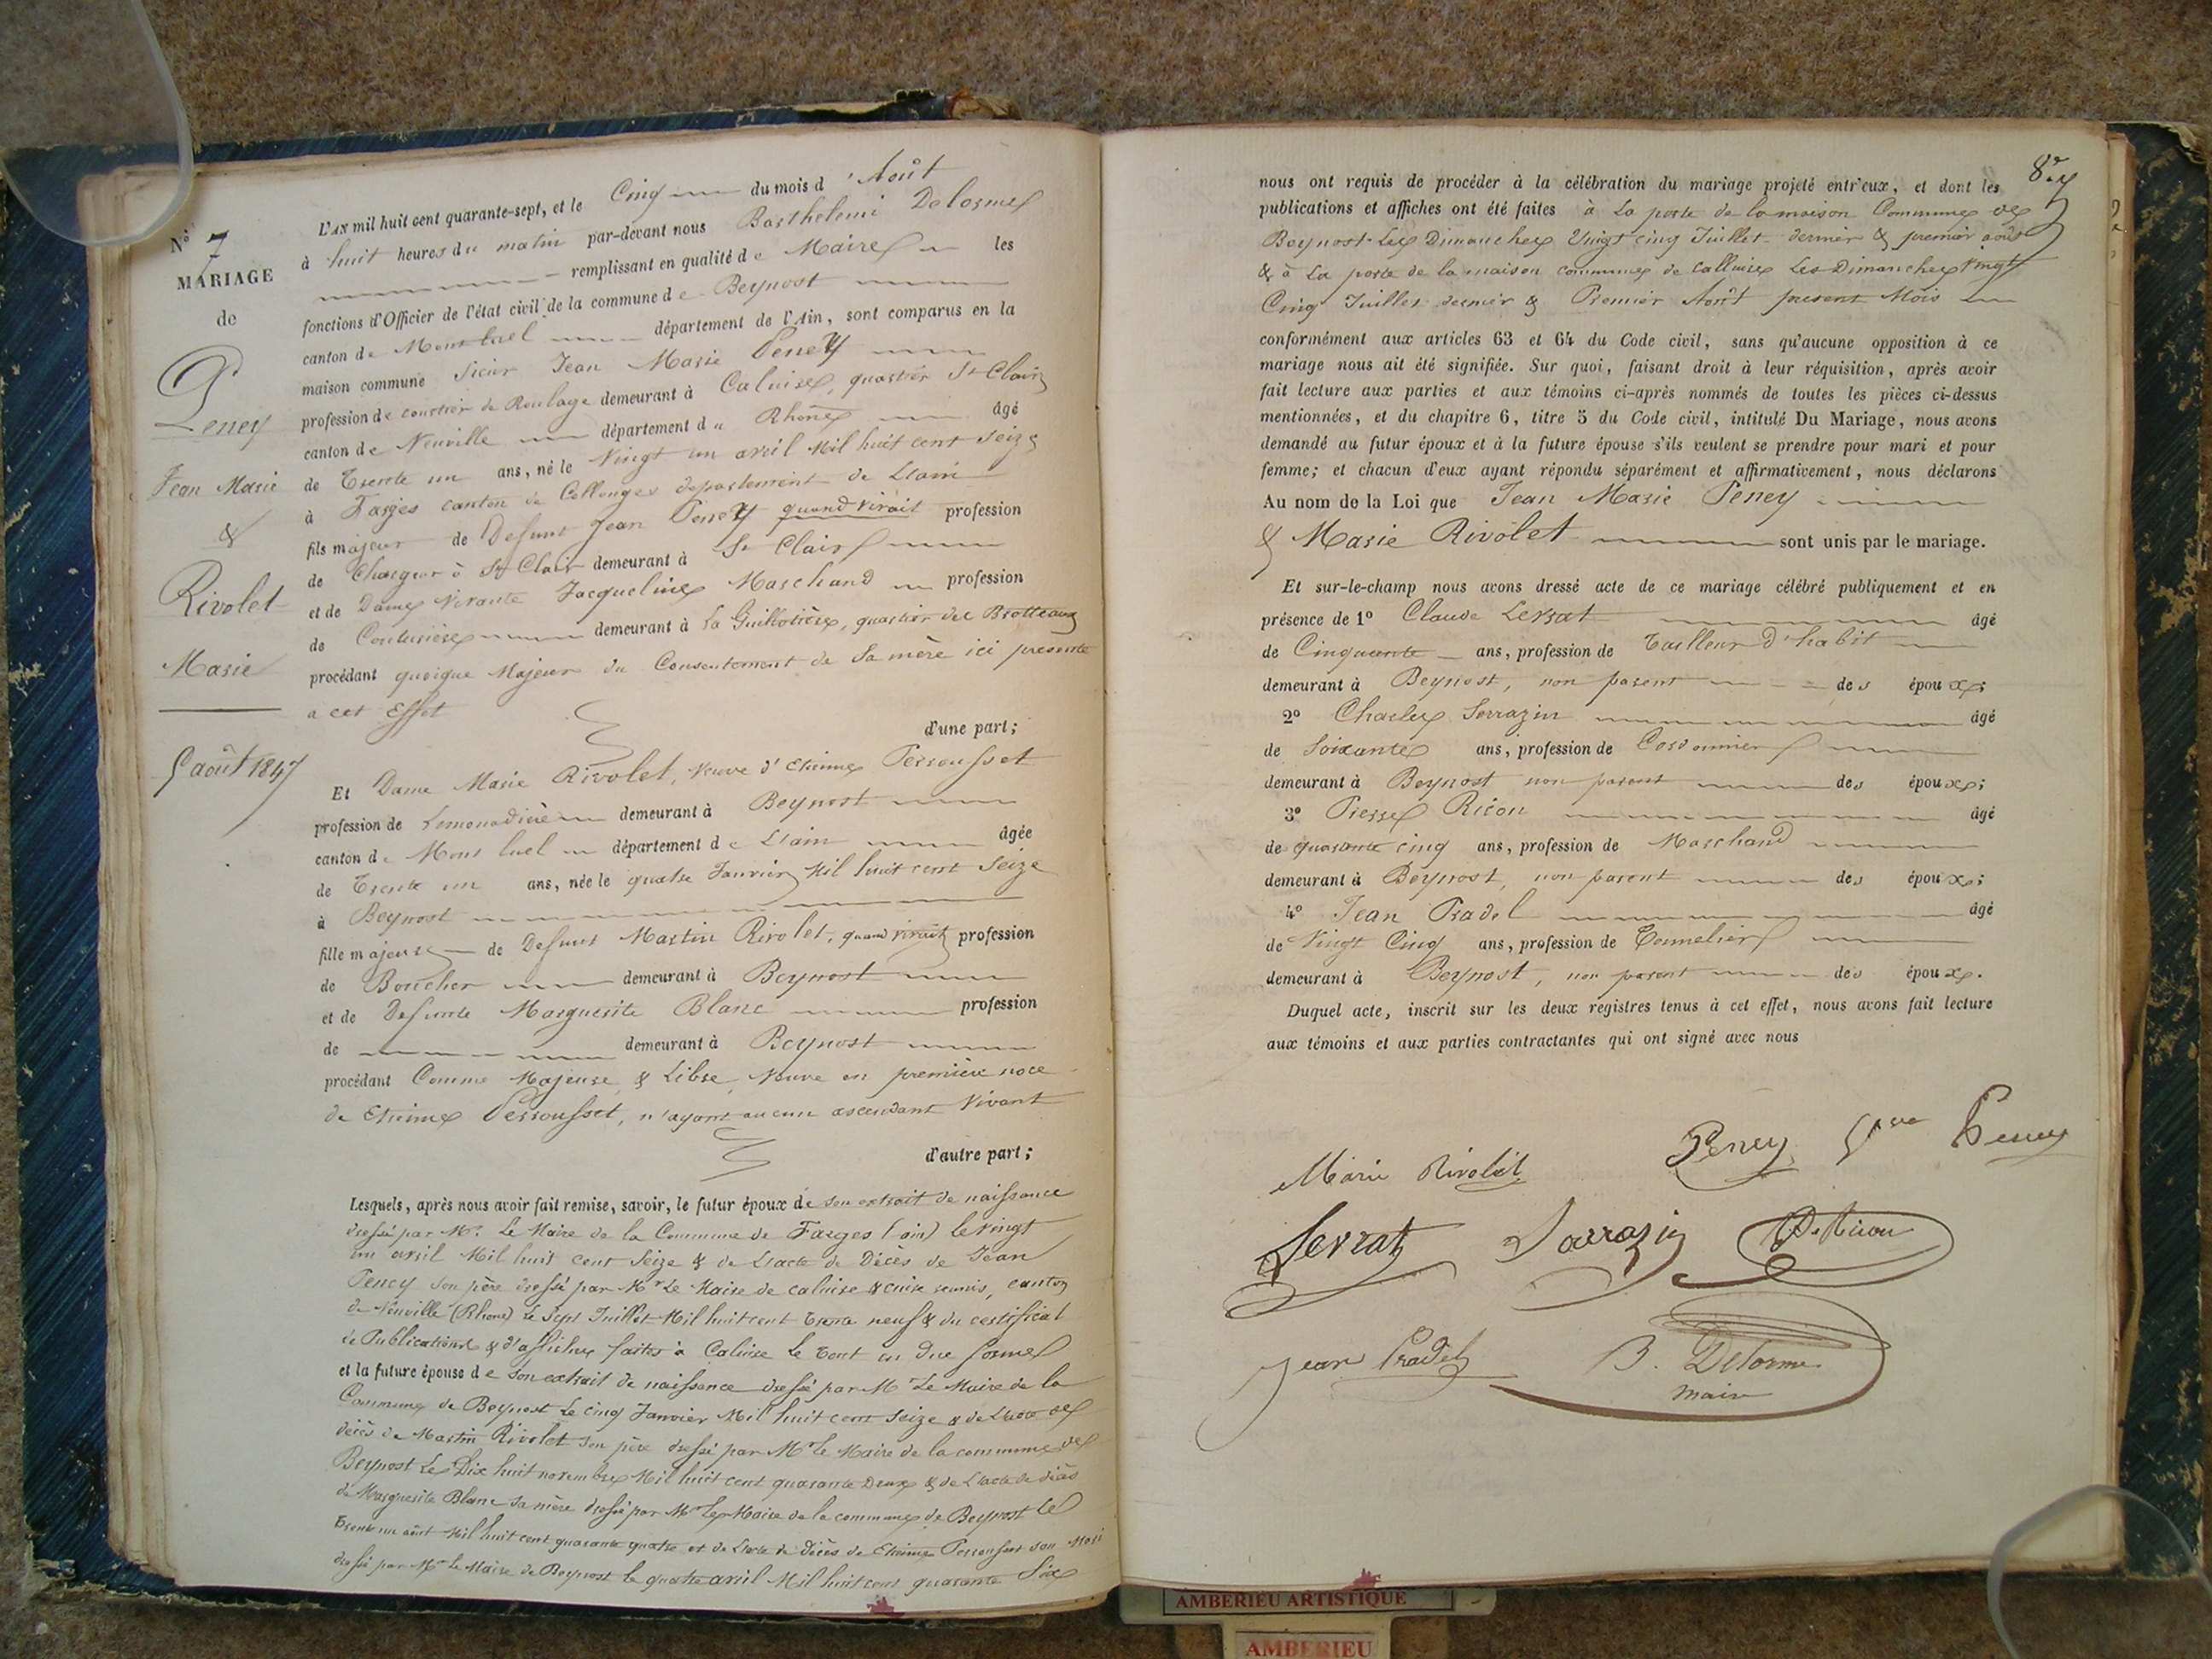 N° 7
MARIAGE
de
Peney
Jean Marie
&
Rivolet
Marie
5 août 1847
L'AN mil huit cent quarante-sept, et le Cinq du mois d'Août
à huit heures du matin par-devant nous Barthelemi Delorme
remplissant en qualité de Maire les
fonctions d'Officier de l'état civil de la commune de Beynost
canton de Montluel département de l'Ain, sont comparus en la
maison commune sieur Jean Marie Peney
profession de courtier de Roulage demeurant à Caluire, quartier St Clair
canton de Neuville département du Rhône âgé
de Trente un ans, né le Vingt un avril Mil huit cent seize
à Farges canton de Collonges departement de L'ain
fils majeur de Defunt Jean Peney quand vivait profession
de Chargeur à St Clair demeurant à St Clair
et de Dame vivante Jacqueline Marchand profession
de Couturière demeurant à La Guillotière, quartier des Brotteaux
procédant quoique Majeur du Consentement de sa mère ici presente
a cet Effet
d'une part;
Et Dame Marie Rivolet, Veuve d'Etienne Perrousset
profession de Limonadière demeurant à Beynost
canton de Montluel département de L'ain âgée
de Trente un ans, née le quatre Janvier Mil huit cent seize
à Beynost
fille majeure de Defunt Martin Rivolet, quand vivait profession
de Boucher demeurant à Beynost
et de Defunte Marguerite Blanc profession
de demeurant à Beynost
procédant Comme Majeure & Libre, Veuve en première noce
de Etienne Perrousset, n'ayant aucun ascendant Vivant
d'autre part;
Lesquels, après nous avoir fait remise, savoir, le futur époux de son extrait de naissance
dressé par Mr. Le Maire de la Commune de Farges (ain) le vingt
un avril Mil huit cent seize & de L'acte de Décès de Jean
Peney son père dressé par Mr Le Maire de caluire & cuire reunis, canton
de Neuville (Rhone) Le Sept Juillet Mil huit cent trente neuf & du certificat
de Publications & d'affiches faites à Caluire Le tout en due forme
et la future épouse de son extrait de naissance dressé par Mr Le Maire de la
Commune de Beynost Le cinq Janvier Mil huit cent seize & de L'acte de
décès de Martin Rivolet son père dressé par Mr Le Maire de la commune de
Beynost Le Dix huit novembre Mil huit cent quarante Deux & de L'acte de décès
de Marguerite Blanc sa mère dressé par Mr Le Maire de la commune de Beynost Le
Trente un août Mil huit cent quarante quatre et de L'acte de Décès de Etienne Perrousset son Mari
dressé par Mr Le Maire de Beynost le quatre avril Mil huit cent quarante Six
nous ont requis de procéder à la célébration du mariage projeté entr'eux, et dont les
publications et affiches ont été faites à La porte de la maison Commune de
Beynost Les Dimanches Vingt cinq Juillet dernier & premier août
& à La porte de la maison commune de Calluire Les Dimanches Vingt
Cinq Juillet dernier & Premier Août present Mois
conformément aux articles 63 et 64 du Code civil, sans qu'aucune opposition à ce
mariage nous ait été signifiée. Sur quoi, faisant droit à leur réquisition, après avoir
fait lecture aux parties et aux témoins ci-après nommés de toutes les pièces ci-dessus
mentionnées, et du chapitre 6, titre 5 du Code civil, intitulé Du Mariage, nous avons
demandé au futur époux et à la future épouse s'ils veulent se prendre pour mari et pour
femme; et chacun d'eux ayant répondu séparément et affirmativement, nous déclarons
Au nom de la Loi que Jean Marie Peney
& Marie Rivolet sont unis par le mariage.
Et sur-le-champ nous avons dressé acte de ce mariage célébré publiquement et en
présence de 1° Claude Levrat âgé
de Cinquante ans, profession de Tailleur d'habit
demeurant à Beynost, non parent des époux;
2° Charles Sarrazin âgé
de Soixante ans, profession de Cordonnier
demeurant à Beynost non parent des époux;
3° Pierre Ricou âgé
de quarante cinq ans, profession de Marchand
demeurant à Beynost, non parent des époux;
4° Jean Pradel âgé
de Vingt Cinq ans, profession de Tonnelier
demeurant à Beynost, non parent des époux.
Duquel acte, inscrit sur les deux registres tenus à cet effet, nous avons fait lecture
aux témoins et aux parties contractantes qui ont signé avec nous
Marie Rivolet Peney Peney
Levrat Sarrazin P. Ricou
Jean Pradel B. Delorme
maire
AMBERIEU ARTISTIQUE
AMBERIEU